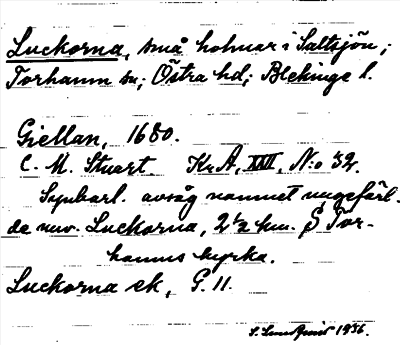 Luckorna, små holmar i Saltsjön;
Torhamn sn; Östra hd; Blekinge l.
Giellan, 1680.
C. M. Stuart KrA, XXII, N:o 32.
Synbarl. avsåg namnet ungefärl.
de nuv. Luckorna, 2½ km. S Tor-
hamns kyrka.
Luckorna ek, G. 11.
1936.